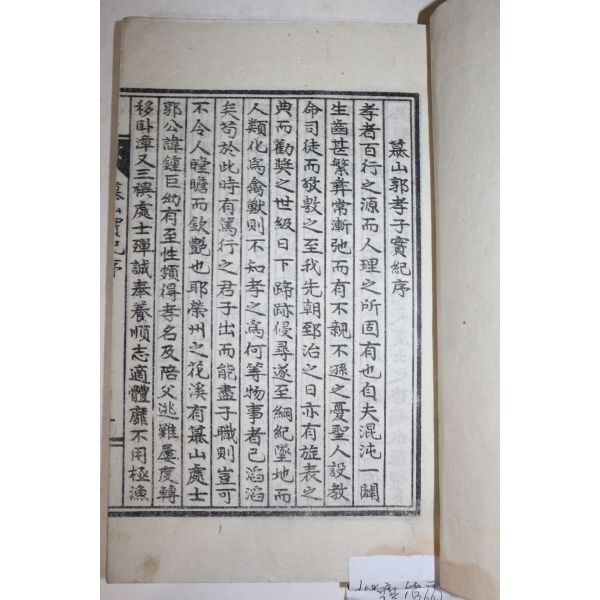 慕山郭孝子實紀序
孝者百行之源而人理之所固有也自夫混沌一闢
生齒甚繁彛常漸弛而有不親不遜之憂聖人設教
命司徒而敬敷之至我先朝郅治之日亦有旌表之
典而勸奬之世級日下蹄跡侵尋遂至綱紀墜地而
人類化爲禽獸則不知孝之爲何等物事者已滔滔
矣苟於此時有篤行之君子出而能盡子職則豈可
不令人瞠瞻而欽艷也耶榮州之花溪有慕山處士
郭公諱鍾臣幼有至性頗得孝名及陪父逃難屢度轉
移卧漳又三禩處士殫誠奉養順志適體靡不用極漁
慕山實紀序
一